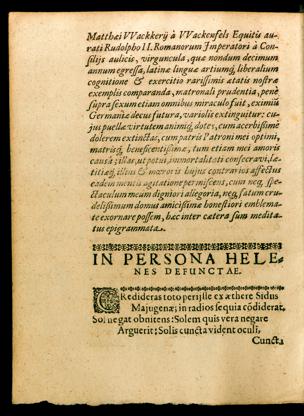 Matthei VVackkerij à VVackenfels Equitis au-
rati Rudolpho II. Romanorum Imperatori à Con-
silijs aulicis, virguncula, quæ nondum decimum
annum egressa, latinæ linguæ artiumq; liberalium
cognitione & exercitio rarissimis ætatis nostræ
exemplis comparanda, matronali prudentia, penè
supra sexum etiam omnibus miraculo fuit, eximiũ
Germaniæ decus futura, variolis extinguitur: cu-
jus puellæ virtutem animiq; dotes, cum acerbissimè
dolerem extinctas, cum patris Patroni mei optimi,
matrisq; beneficentissimæ, tum etiam mei amoris
causâ; illas, ut potui, immortalitati consecravi, læ-
titiæq; illius & mœroris hujus contrarios affectus
eadem mentis agitatione permiscens, cum neq; spe-
ctaculum meum digniori allegoria, neq; fatum cru-
delissimum domus amicissimæ honestiori emblema-
te exornare possem, hæc inter cætera sum medita-
tus epigrammata.
IN PERSONA HELE-
NES DEFUNCTAE.
CRedideras toto periisse ex æthere Sidus
Majugenæ; in radios sequia cõdiderat.
Sol negat obnitens: Solem quis vera negare
Arguerit; Solis cuncta vident oculi,
Cuncta